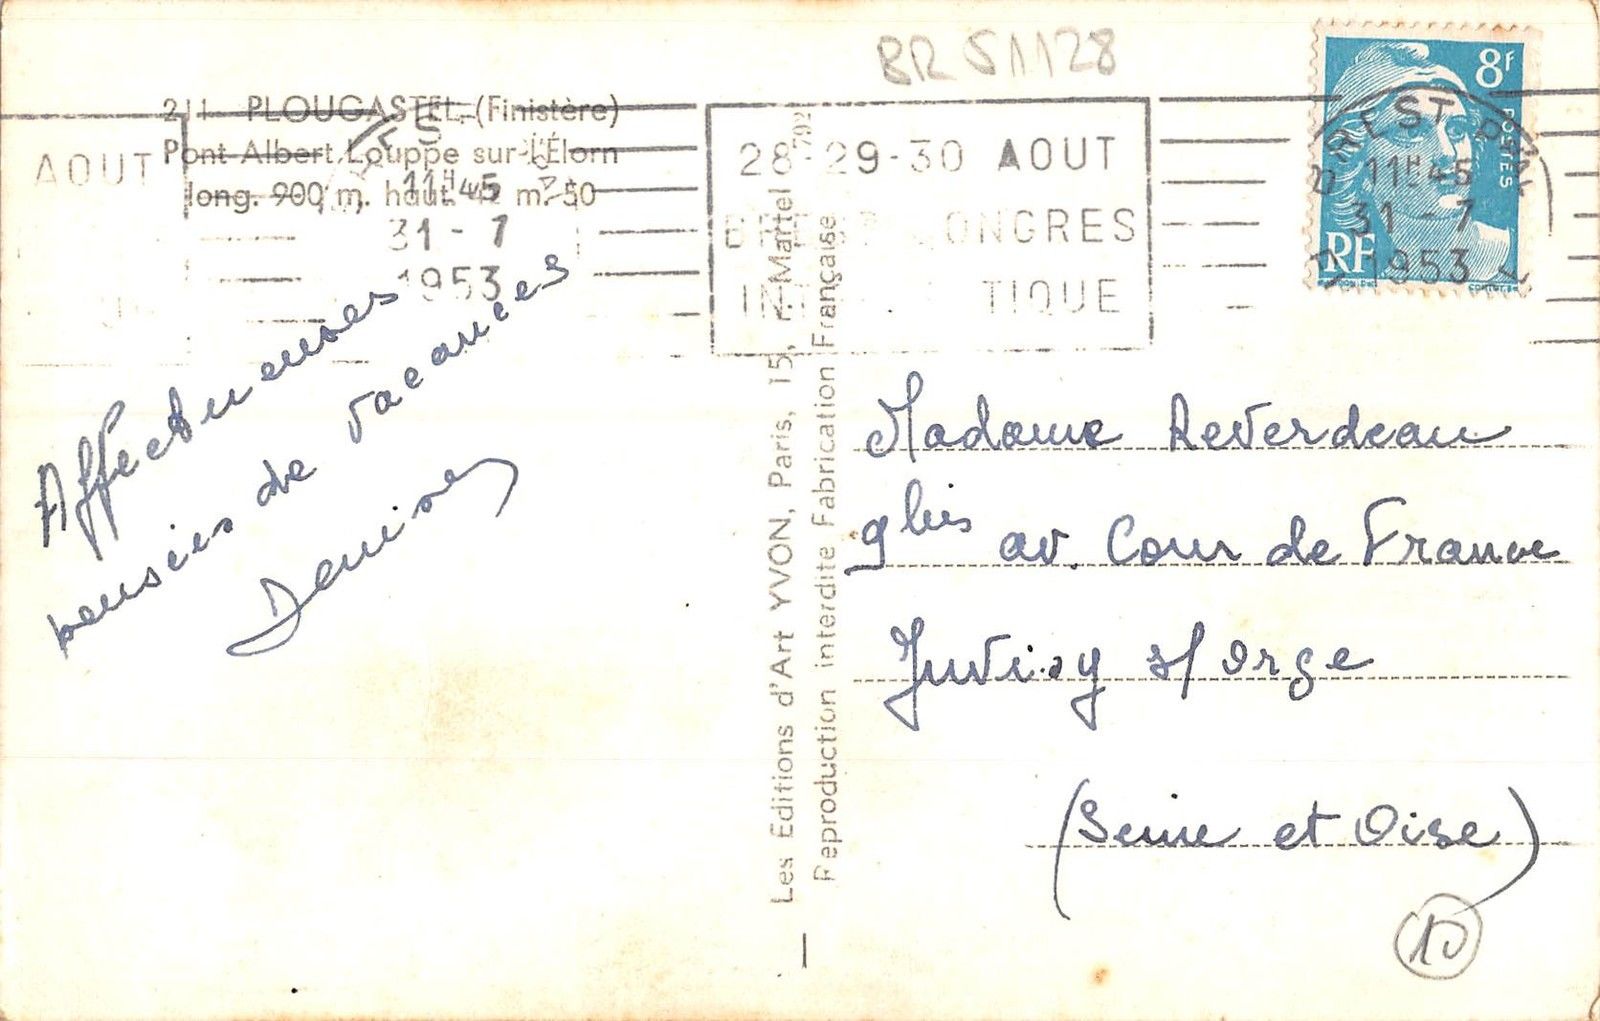 BR S1128
211 PLOUGASTEL (Finistère)
Pont Albert Louppe sur l'Élorn
long. 900 m. haut. m. 50
AOUT
11H45
31 - 7
1953
28-29-30 AOUT
CONGRES
TIQUE
8F
POSTES
RF
BREST
11H45
31 - 7
1953
Affectueuses
pensées de vacances
Denise
Les Editions d'Art YVON, Paris, 15, r. Martel
Reproduction interdite Fabrication Française
Madame Reverdeau
9 bis av. Cour de France
Juvisy s/ Orge
(Seine et Oise)
10